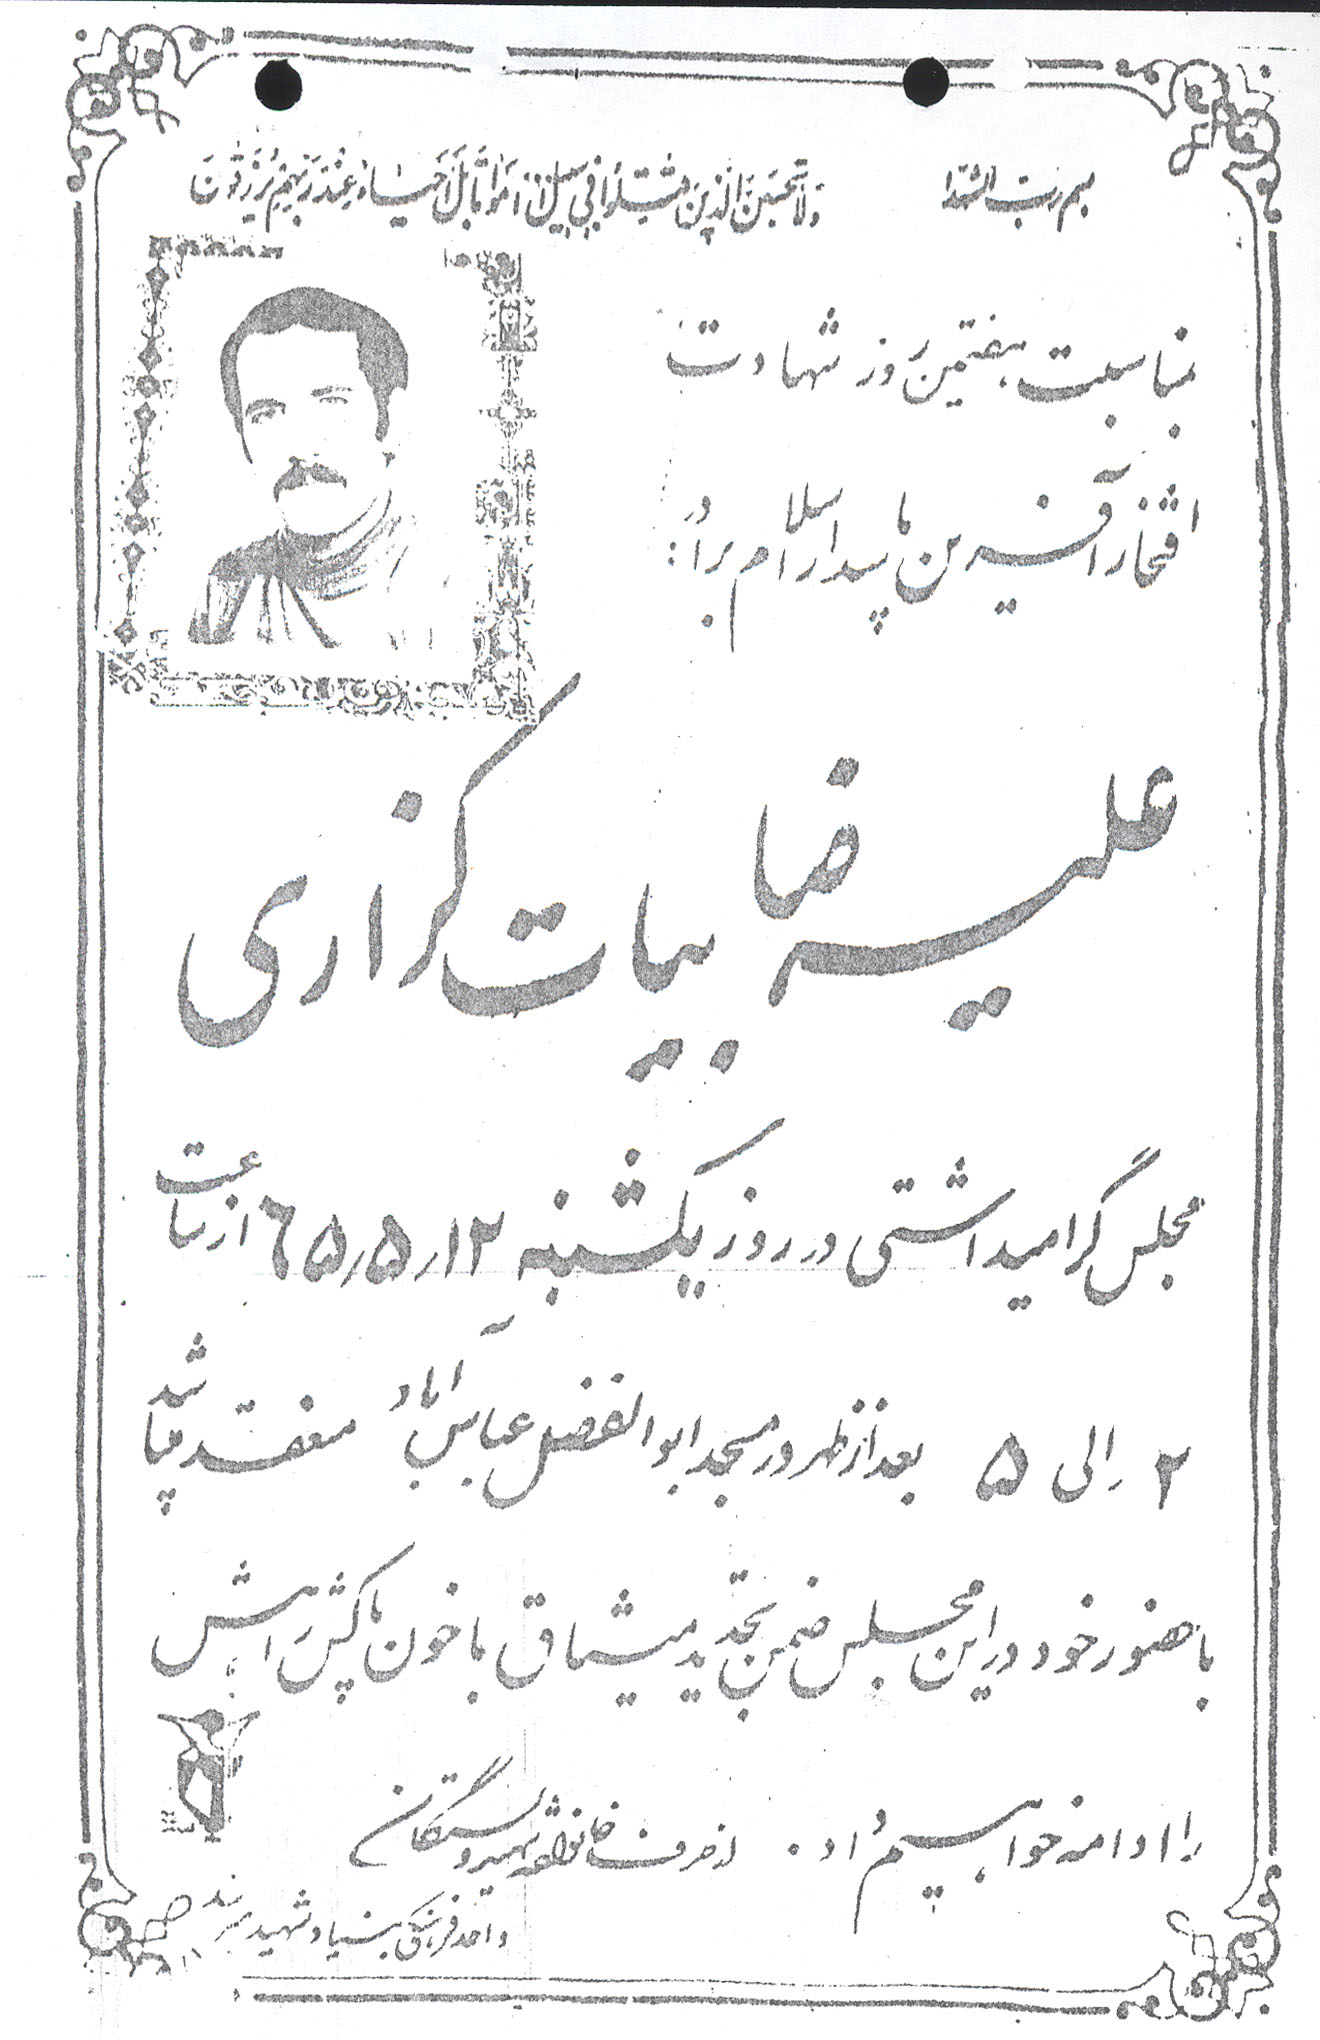 بسم رب الشهدا
وَلا تَحْسَبَنَّ الَّذینَ قُتِلُوا فی سَبیلِ اللهِ اَمْواتاً بَلْ اَحیاءٌ عِنْدَ رَبِّهِمْ یُرْزَقُونَ
بمناسبت هفتمین روز شهادت
افتخار آفرین پاسدار اسلام برادر:
علیرضا بیات گزاری
مجلس گرامیداشتی در روز یکشنبه ۱۲ر۵ر۶۵ از ساعت
۲ الی ۵ بعد از ظهر در مسجد ابوالفضل عباس آباد منعقد میباشد
با حضور خود در این مجلس ضمن تجدید میثاق با خون پاکش راهش
را ادامه خواهیم داد. از طرف خانواده شهید و بستگان
واحد فرهنگی بنیاد شهید